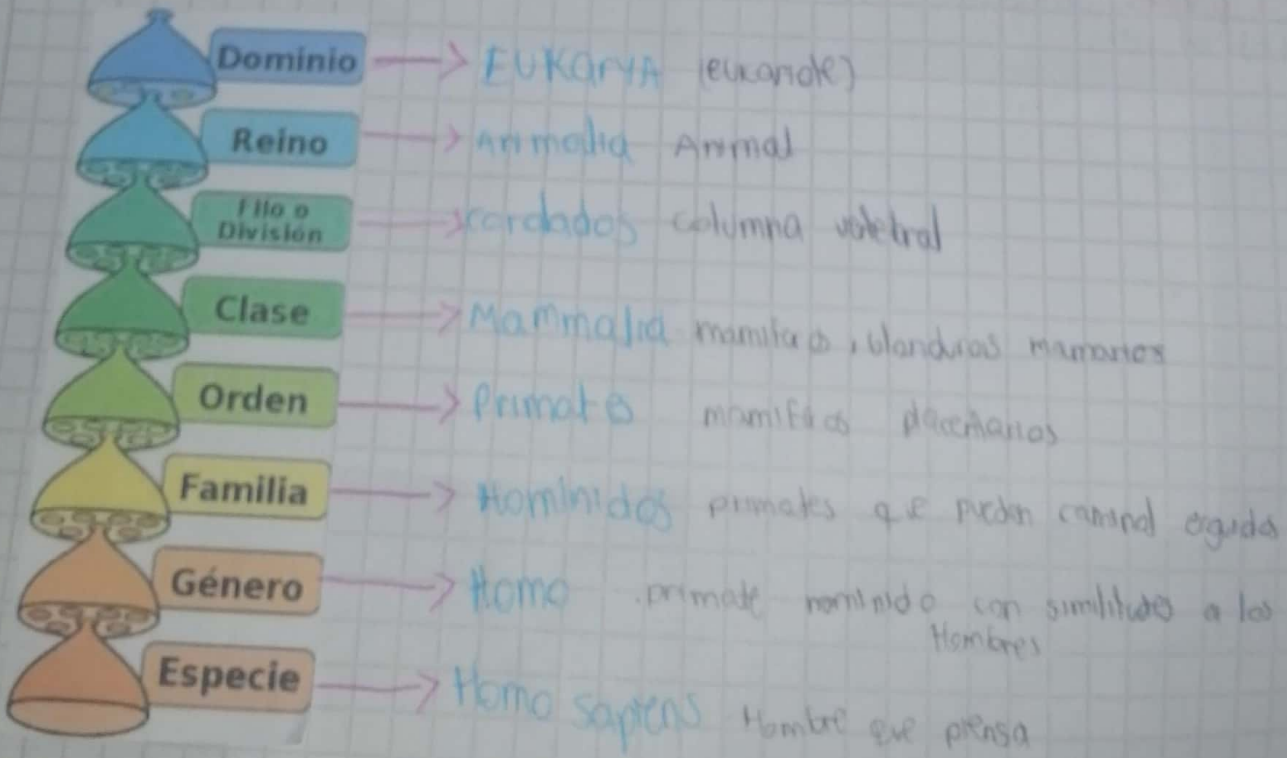 Dominio EUKaryA (eucariote)
Reino Animalia Animal
Filo o
División cordados columna vertebral
Clase Mammalia mamiferos, glandulas mamarias
Orden Primates mamiferos placentarios
Familia Hominidos primates que pueden caminar erguidos
Género Homo primate hominido con similitudes a los
Hombres
Especie Homo sapiens Hombre que piensa